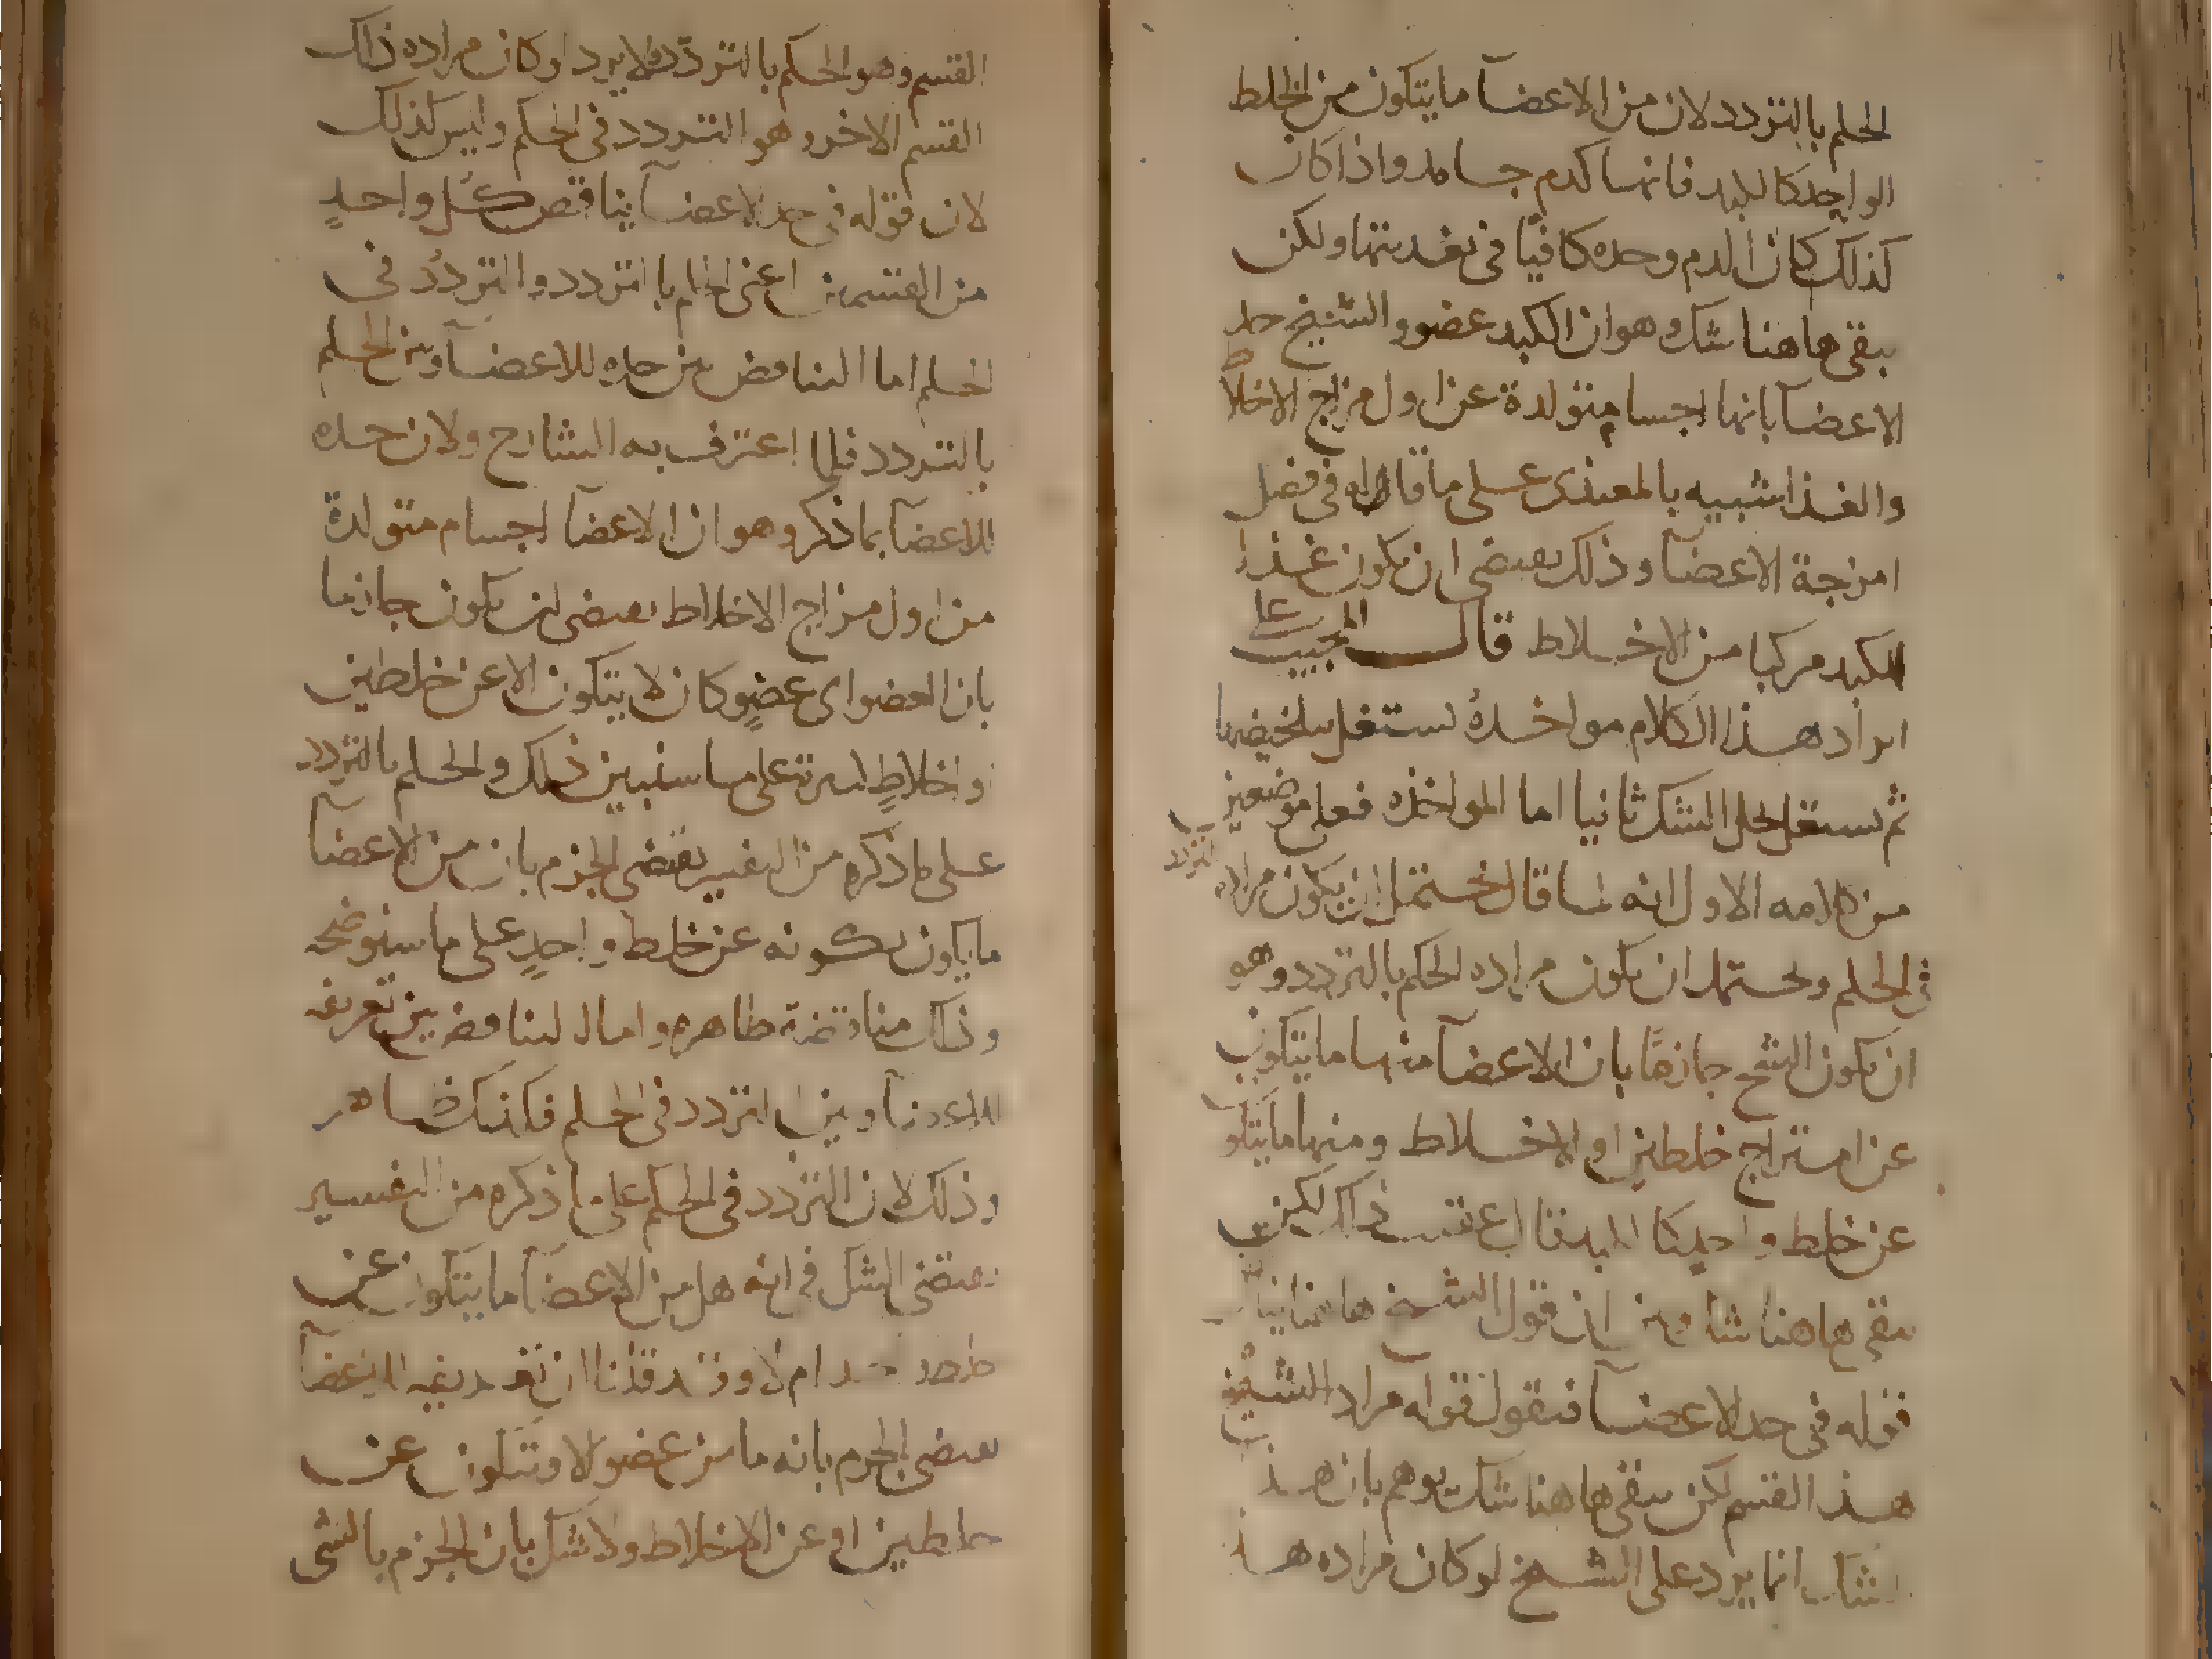 الحكم بالتردد لان من الاعضآ ما يتكون من الخلط
الواحد كالكبد فانها كدم جامد واذا كان
كذلك كان الدم وحده كافيًا في تغديتها ولكن
يبقى هاهنا شك وهو ان الكبد عضو والشيخ حد
الاعضآ بانها اجسام متولدة عن اول مزاج الاخلاط
والغذا شبيه بالمغتذى على ما قاله في فصل
امزجة الاعضآ وذلك يقتضى ان يكون غذا
الكبد مركبا من الاخلاط قال المجيب على
ايراد هذا الكلام مواخذة نستغل بتلخيصها
ثم نستغل بحل الشك ثانيا اما المواخذه فعلى موضعين
من كلامه الاول انه لما قال يحتمل ان يكون مراده التردد
في الحكم ويحتمل ان يكون مراده الحكم بالتردد وهو
ان يكون الشيخ جازمًا بان الاعضآ منها ما يتكون
عن امتزاج خلطين او الاخلاط ومنها ما يتكو
عن خلط واحد كالكبد قال عقيب ذلك لكن
يبقى هاهنا شك وهو ان قول الشيخ هاهنا
قوله في حد الاعضآ فنقول قوله مراد الشيخ
هذا القسم لكن يبقى هاهنا شك يوهم بان هذا
الشك انما يرد على الشيخ لو كان مراده هذا
القسم وهو الحكم بالتردد فلا يرد لو كان مراده ذلك
القسم الاخر وهو التردد في الحكم وليس كذلك
لان قوله في حد الاعضآ يناقض كل واحدٍ
من القسمين اعنى الحكم بالتردد والتردد في
الحكم اما التناقض بين حده للاعضآ وبين الحكم
بالتردد فلما اعترف به الشارح ولان حده
للاعضآ بما ذكر وهو ان الاعضآ اجسام متولدة
من اول مزاج الاخلاط يقتضى ان يكون جازما
بان العضو اى عضوٍ كان لا يتكون الا عن خلطين
او اخلاطٍ على ما سنبين ذلك والحكم بالتردد
على ما ذكره من التفسير يقتضى الجزم بان من الاعضآ
ما يكون تكونه عن خلط واحدٍ على ما سنوضحه
وذلك مناقضة ظاهره واما التناقض بين تعريفه
للاعضآ وبين التردد في الحكم فكذلك ظاهر
وذلك لان التردد في الحكم على ما ذكره من التفسير
يقتضى الشك في انه هل من الاعضآ ما يتكون عن
خلط واحد ام لا وقد قلنا ان تعريفه للاعضآ
يقتضى الجزم بانه ما من عضو الا ويتكون عن
خلطين او عن الاخلاط ولا شك بان الجزم بالشى